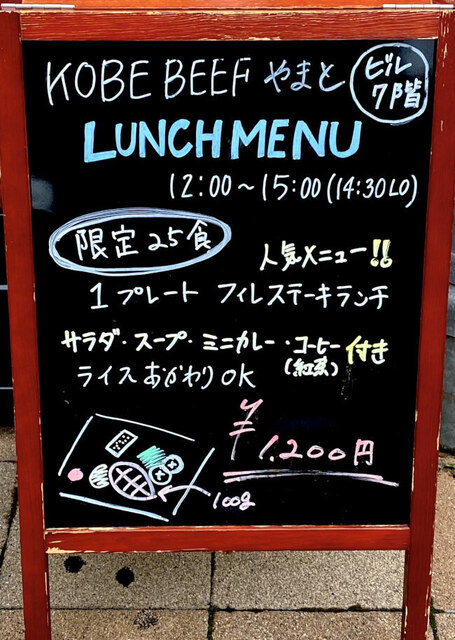 KOBE BEEF やまと
ビル
7階
LUNCH MENU
12:00～15:00(14:30LO)
限定25食
人気メニュー!!
1プレート フィレステーキランチ
サラダ・スープ・ミニカレー・コーヒー付き
(紅茶)
ライスおかわりOK
¥1,200円
100g